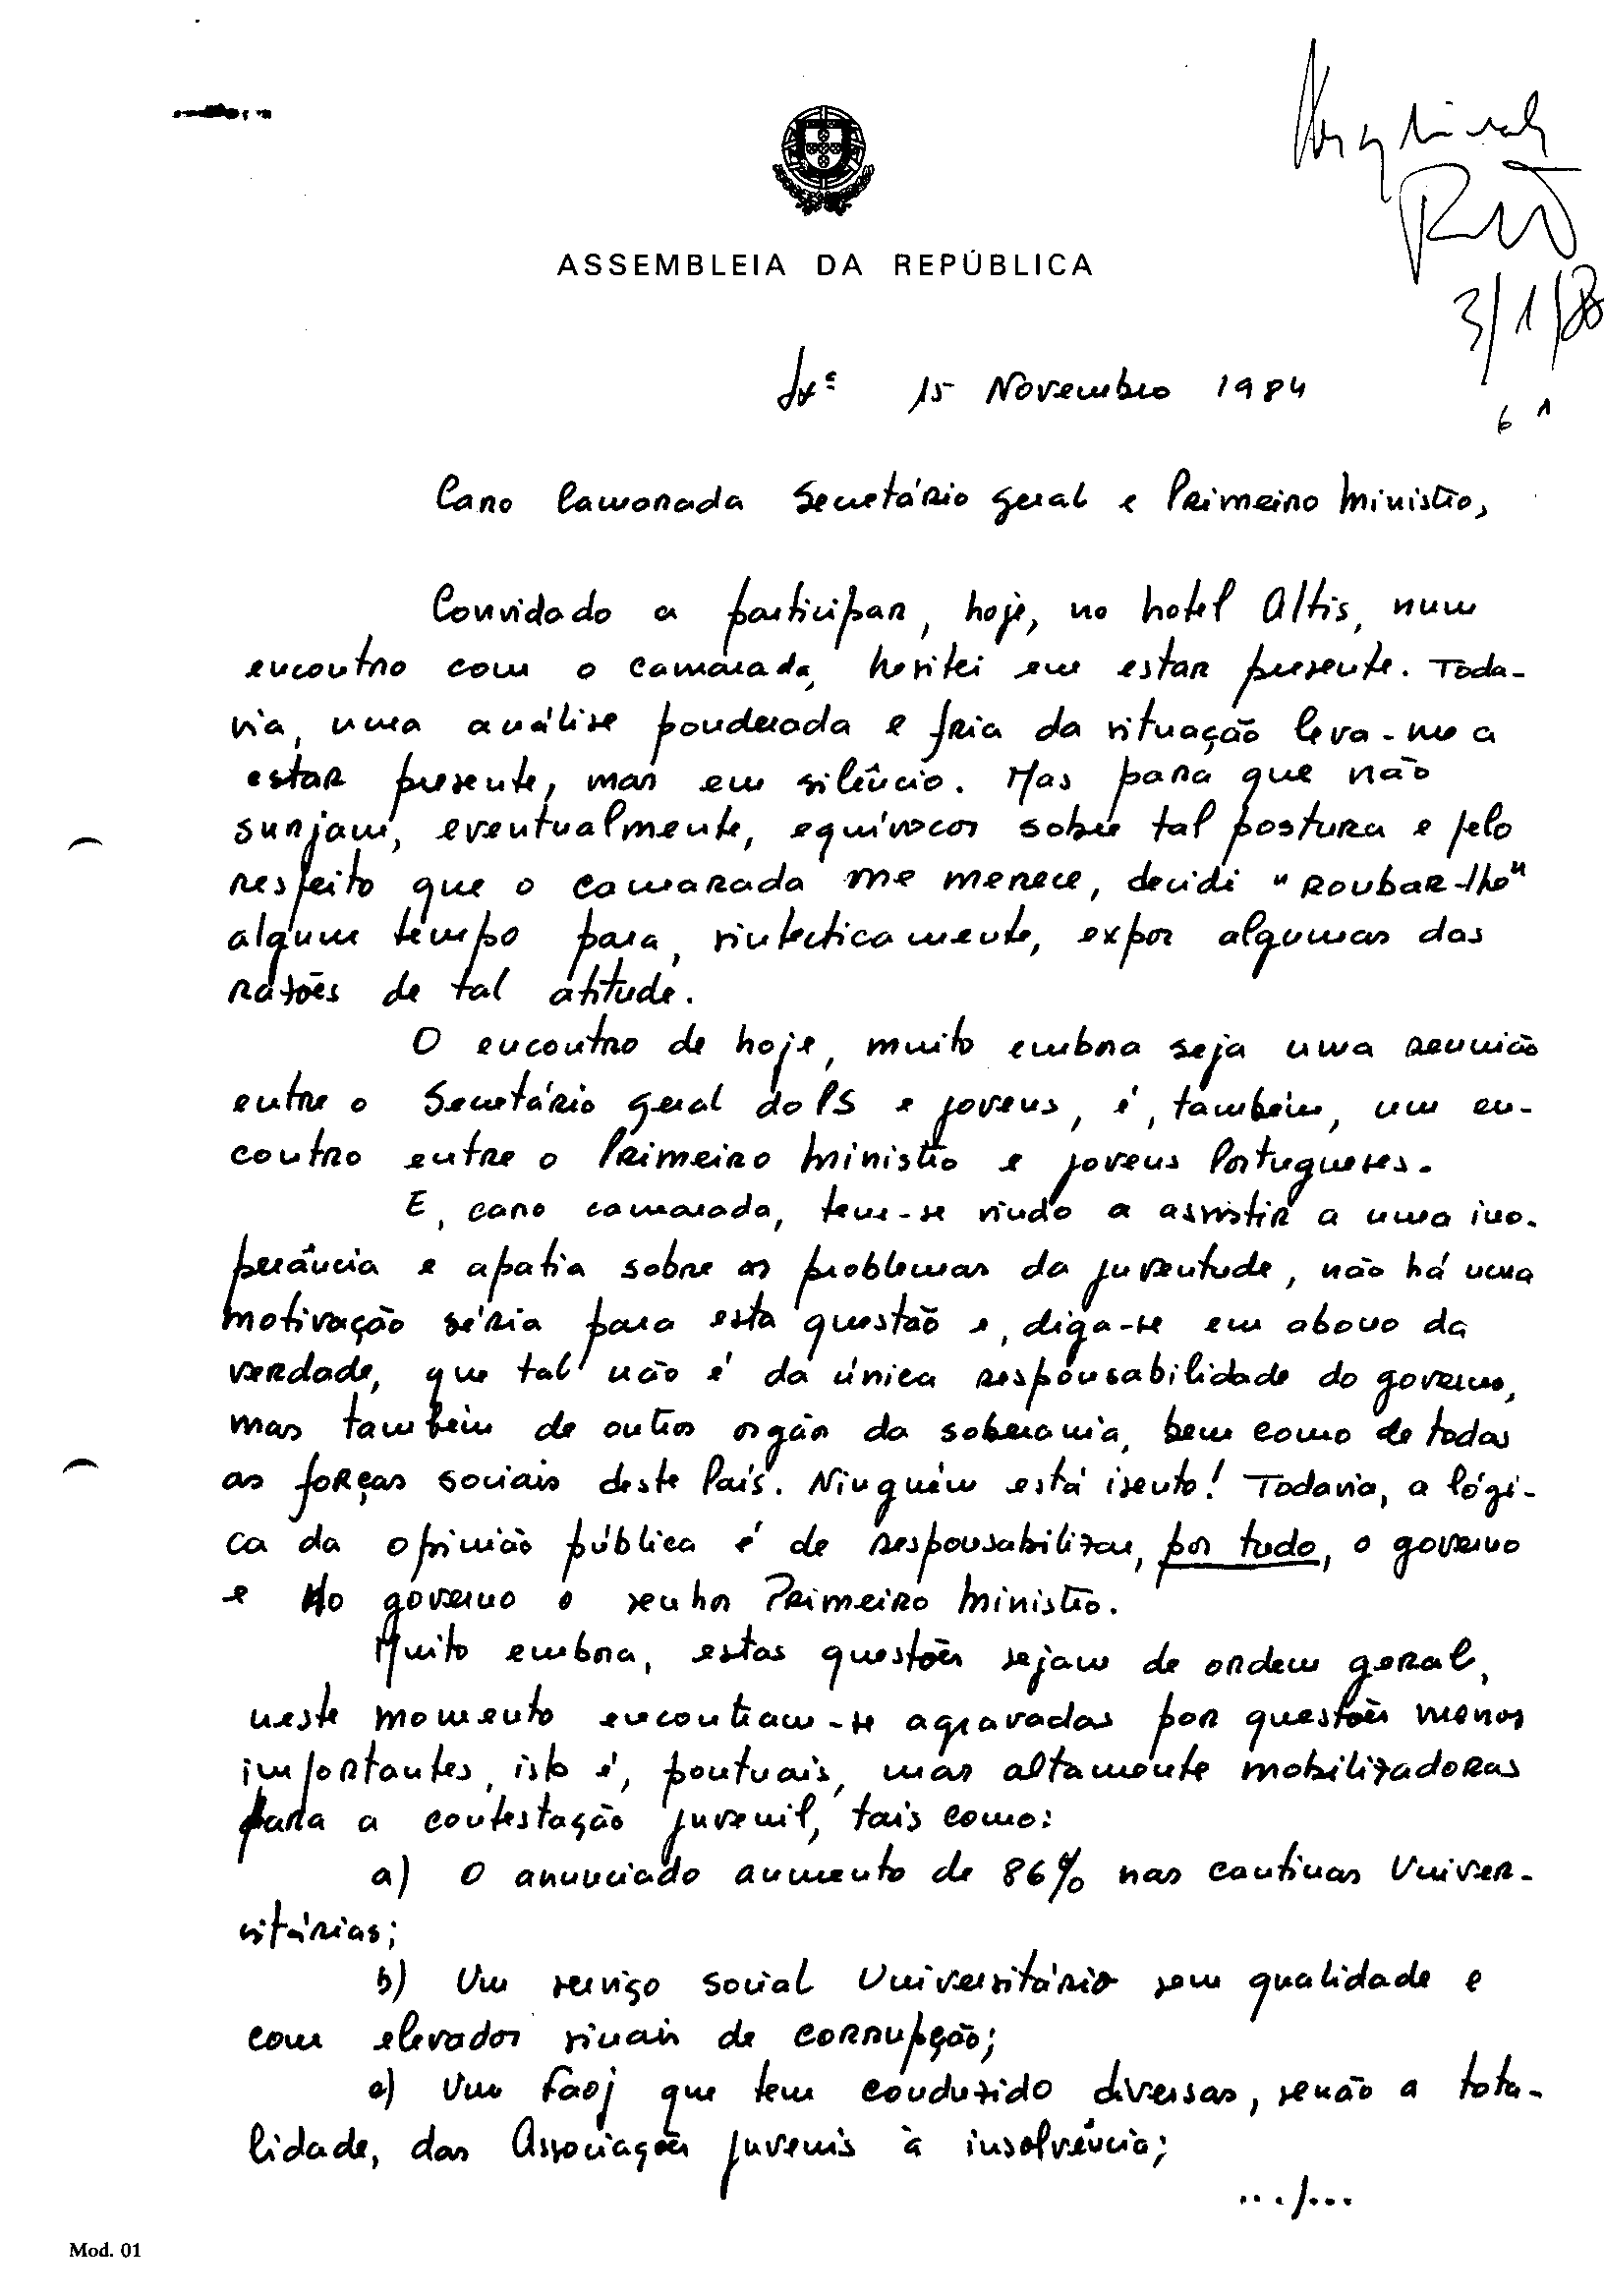 ASSEMBLEIA DA REPÚBLICA
3/1/8
Lxª 15 Novembro 1984
6 1
Caro Camarada Secretário Geral e Primeiro Ministro,
Convidado a participar, hoje, no hotel Altis, num
encontro com o camarada, hesitei em estar presente. Toda-
via, uma análise ponderada e fria da situação leva-me a
estar presente, mas em silêncio. Mas para que não
surjam, eventualmente, equívocos sobre tal postura e pelo
respeito que o camarada me merece, decidi "roubar-lhe"
algum tempo para, sintecticamente, expor algumas das
razões de tal atitude.
O encontro de hoje, muito embora seja uma reunião
entre o Secretário geral do PS e jovens, é, também, um en-
contro entre o Primeiro Ministro e jovens Portugueses.
E, caro camarada, tem-se vindo a assistir a uma ino-
perância e apatia sobre os problemas da juventude, não há uma
motivação séria para esta questão e, diga-se em abono da
verdade, que tal não é da única responsabilidade do governo,
mas também de outros orgãos da soberania, bem como de todas
as forças sociais deste País. Ninguém está isento! Todavia, a lógi-
ca da opinião pública é de responsabilizar, por tudo, o governo
e no governo o senhor Primeiro Ministro.
Muito embora, estas questões sejam de ordem geral,
neste momento encontram-se agravadas por questões menos
importantes, isto é, pontuais, mas altamente mobilizadoras
para a contestação juvenil, tais como:
a) O anunciado aumento de 86% nas cantinas Univer-
sitárias;
b) Um serviço social Universitário sem qualidade e
com elevados sinais de corrupção;
c) Um Faoj que tem conduzido diversas, senão a tota-
lidade, das Associações juvenis à insolvência;
.../...
Mod. 01